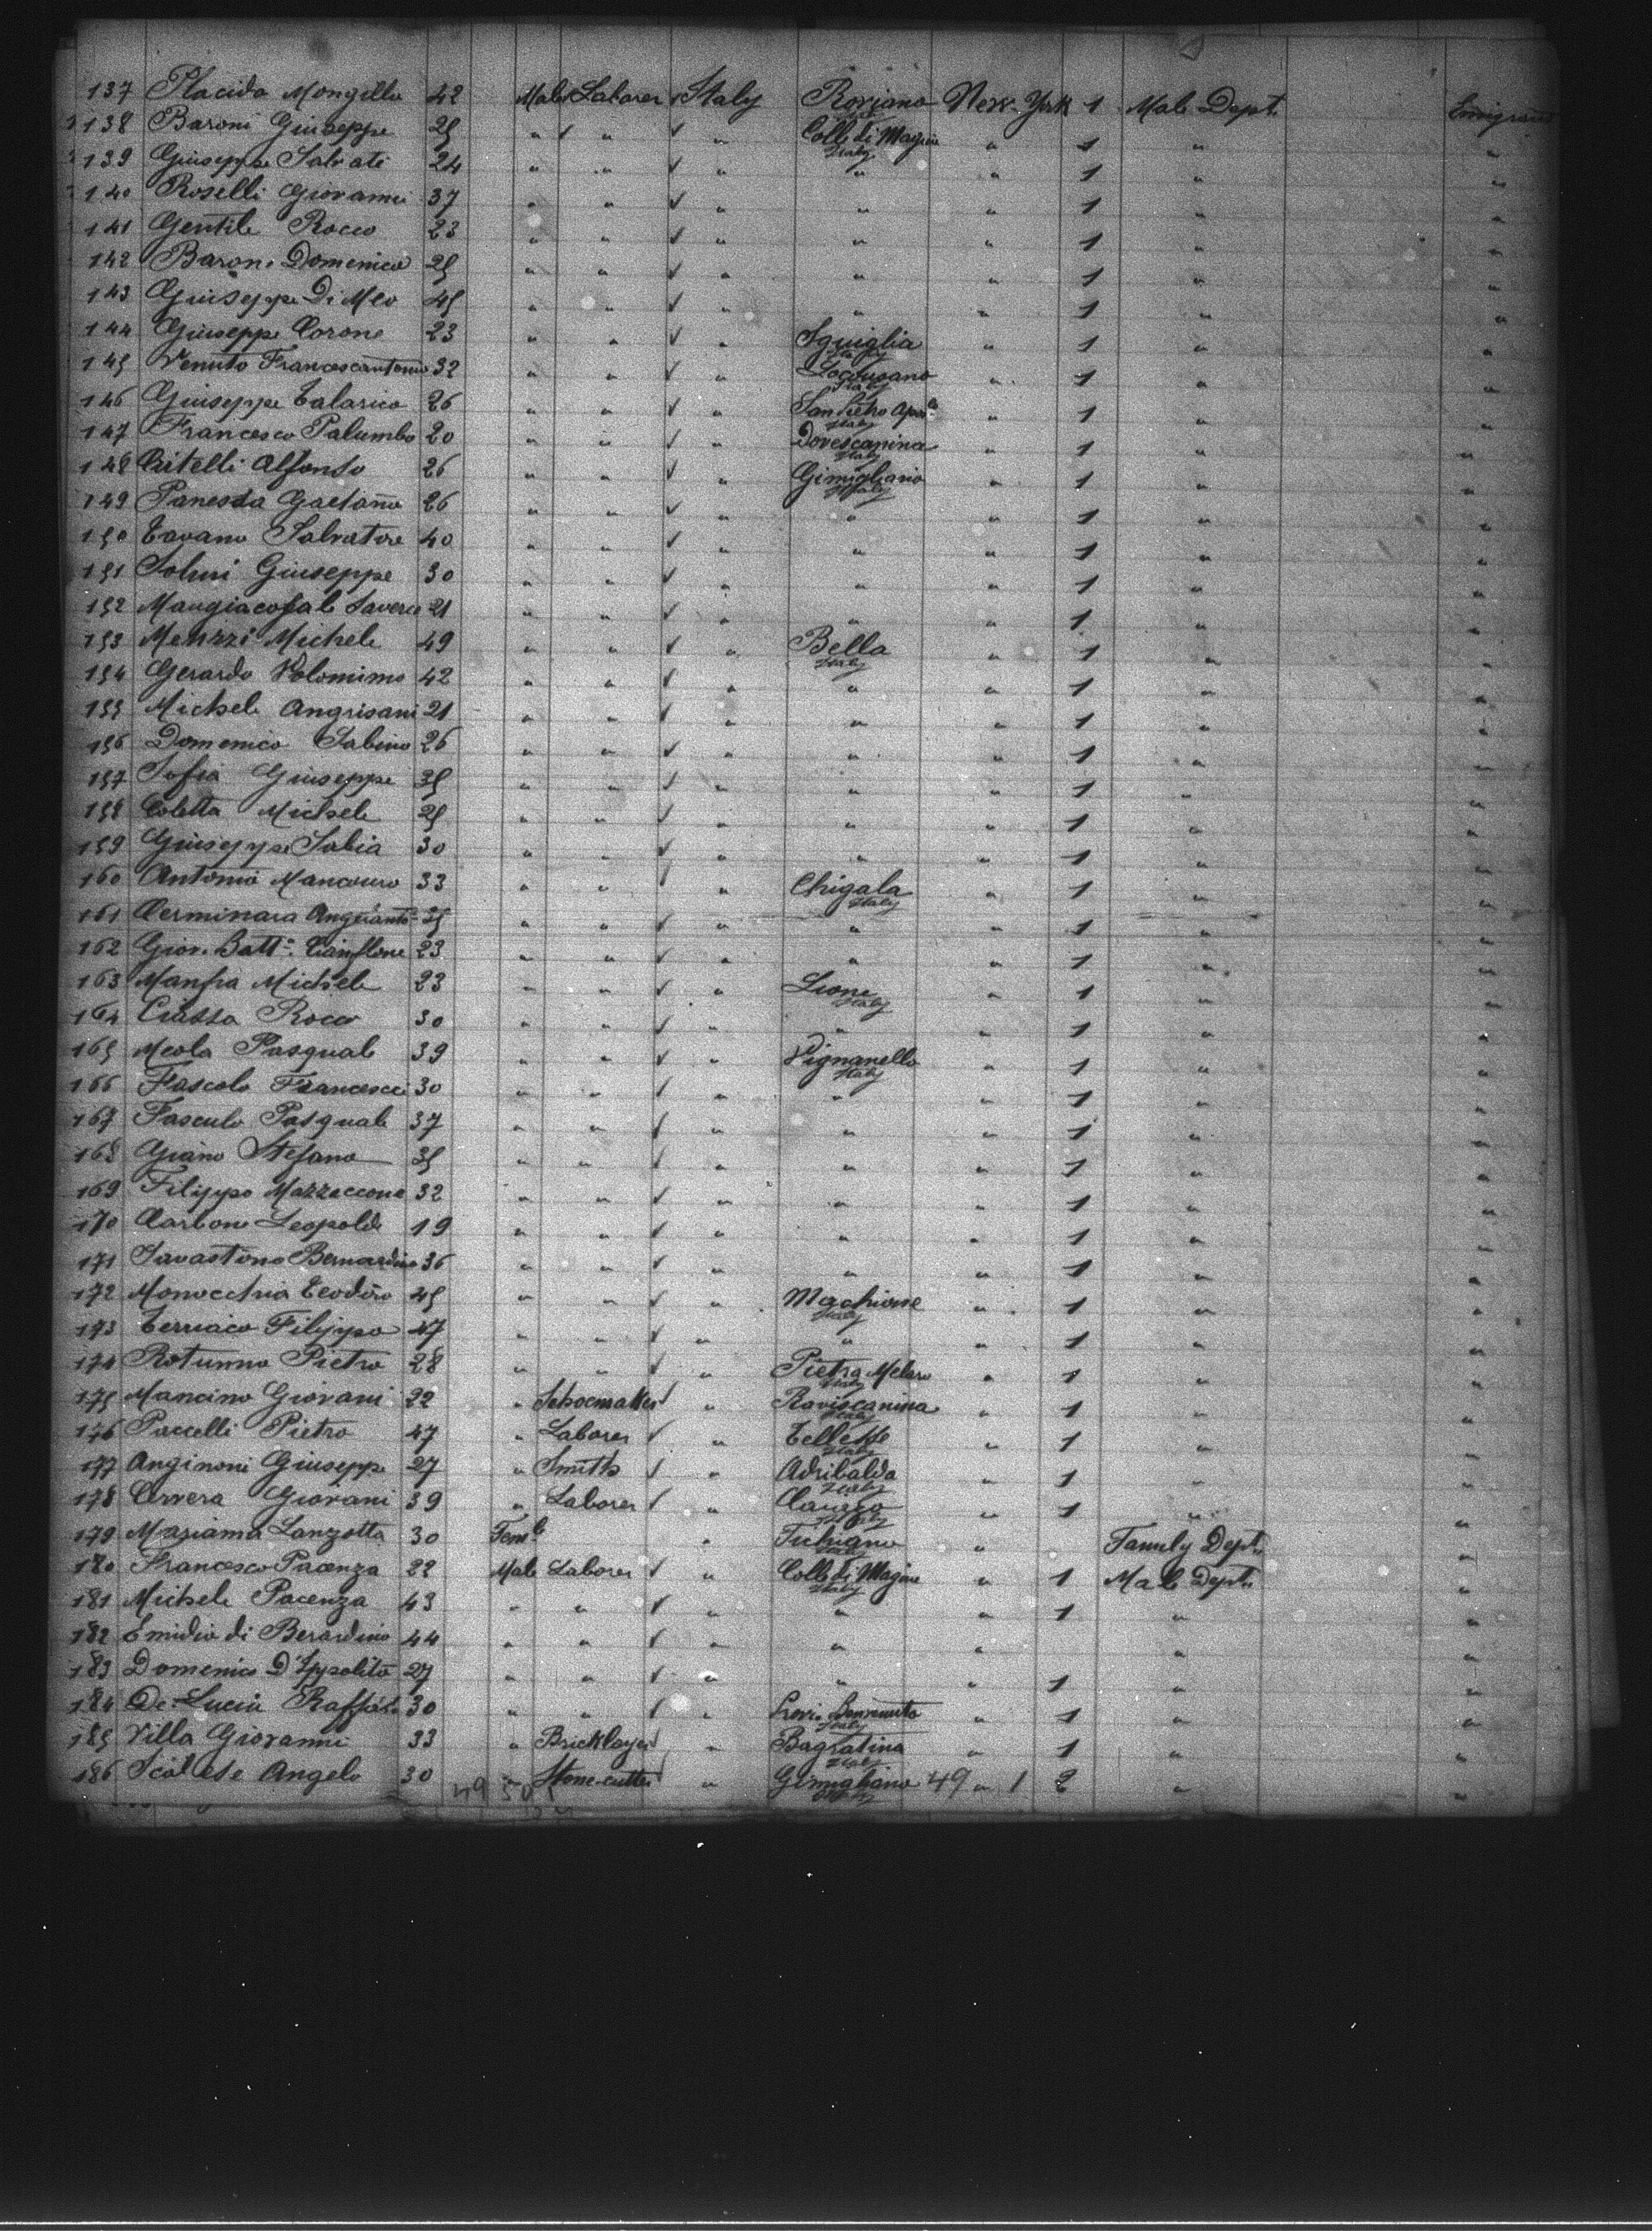 137 Placido Mongillo 42 Male Laborer ✓ Italy Roviano Italy New-York 1 Male Dept. Emigrant
138 Baroni Giuseppe 25 " ✓ " ✓ " Colle di Magine Italy " 1 " "
139 Giuseppe Salvati 24 " " ✓ " " " 1 " "
140 Roselli Giovanni 37 " " ✓ " " " 1 " "
141 Gentile Rocco 23 " " ✓ " " " 1 " "
142 Baroni Domenico 25 " " ✓ " " " 1 " "
143 Giuseppe Di Meo 45 " " ✓ " " " 1 " "
144 Giuseppe Corone 23 " " ✓ " Squiglia Italy " 1 " "
145 Venuto Francescantonio 32 " " ✓ " Italy " 1 " "
146 Giuseppe Talarico 26 " " ✓ " San Pietro Apos Italy " 1 " "
147 Francesco Palumbo 20 " " ✓ " Dovescanina Italy " 1 " "
148 Critelli Alfonso 26 " " ✓ " Gimigliano Italy " 1 " "
149 Gaetano 26 " " ✓ " " " 1 " "
150 Tavano Salvatore 40 " " ✓ " " " 1 " "
151 Giuseppe 30 " " ✓ " " " 1 " "
152 Saverio 21 " " ✓ " " " 1 " "
153 Menzzi Michele 49 " " ✓ " Bella Italy " 1 " "
154 Gerardo 42 " " ✓ " " " 1 " "
155 Michele Angrisani 21 " " ✓ " " " 1 " "
156 Domenico Sabino 26 " " ✓ " " " 1 " "
157 Sofia Giuseppe 35 " " ✓ " " " 1 " "
158 Coletta Michele 25 " " ✓ " " " 1 " "
159 Giuseppe Sabia 30 " " ✓ " " " 1 " "
160 Antonio Mancouso 33 " " ✓ " Chigala Italy " 1 " "
161 Cerminara 35 " " ✓ " " " 1 " "
162 Giov. Batt. Cianflone 23 " " ✓ " " " 1 " "
163 Manfra Michele 23 " " ✓ " Lione Italy " 1 " "
164 Rocco 30 " " ✓ " " " 1 " "
165 Meola Pasquale 39 " " ✓ " Vignanello Italy " 1 " "
166 Fascolo Francesco 30 " " ✓ " " " 1 " "
167 Fasculo Pasquale 37 " " ✓ " " " 1 " "
168 Giano Stefano 35 " " ✓ " " " 1 " "
169 Filippo Mazzaccone 32 " " ✓ " " " 1 " "
170 Carbone Leopoldo 19 " " ✓ " " " 1 " "
171 Savastono Bernardino 36 " " ✓ " " " 1 " "
172 Monocchia Teodoro 45 " " ✓ " Machione Italy " 1 " "
173 Terriaco Filippo 47 " " ✓ " " " 1 " "
174 Rotunno Pietro 28 " " ✓ " Pietra Melaro Italy " 1 " "
175 Mancino Giovani 22 " Schoemaker ✓ " Raviscanina Italy " 1 " "
176 Paccelli Pietro 47 " Laborer ✓ " Tellesse Italy " 1 " "
177 Anginoni Giuseppe 27 " Smith ✓ " Adribalda Italy " 1 " "
178 Errera Giovani 39 " Laborer ✓ " Italy " 1 " "
179 Mariama Lanzotta 30 Feml. " Tichiano Italy " Family Dept. "
180 Francesco Pacenza 22 Male Laborer ✓ " Colle di Magine Italy " 1 Male Dept. "
181 Michele Pacenza 43 " " ✓ " " " 1 " "
182 Emidio di Berardino 44 " " ✓ " " " " "
183 Domenico D'Ippolito 27 " " ✓ " " " 1 " "
184 De-Lucia Raffaele 30 " " ✓ " Prov. Benvenuto Italy " 1 " "
185 Villa Giovanni 33 " Bricklayer ✓ " Bagratina Italy " 1 " "
186 Scalese Angelo 30 " Stone-cutter ✓ " Gimigliano Italy 49 " 1 2 " "
49 50